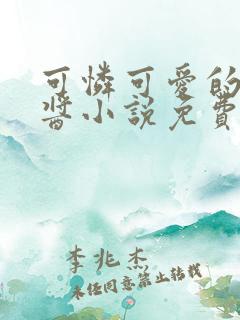 可憐可愛的
醬小說免費
李兆杰
未经同意禁止转载